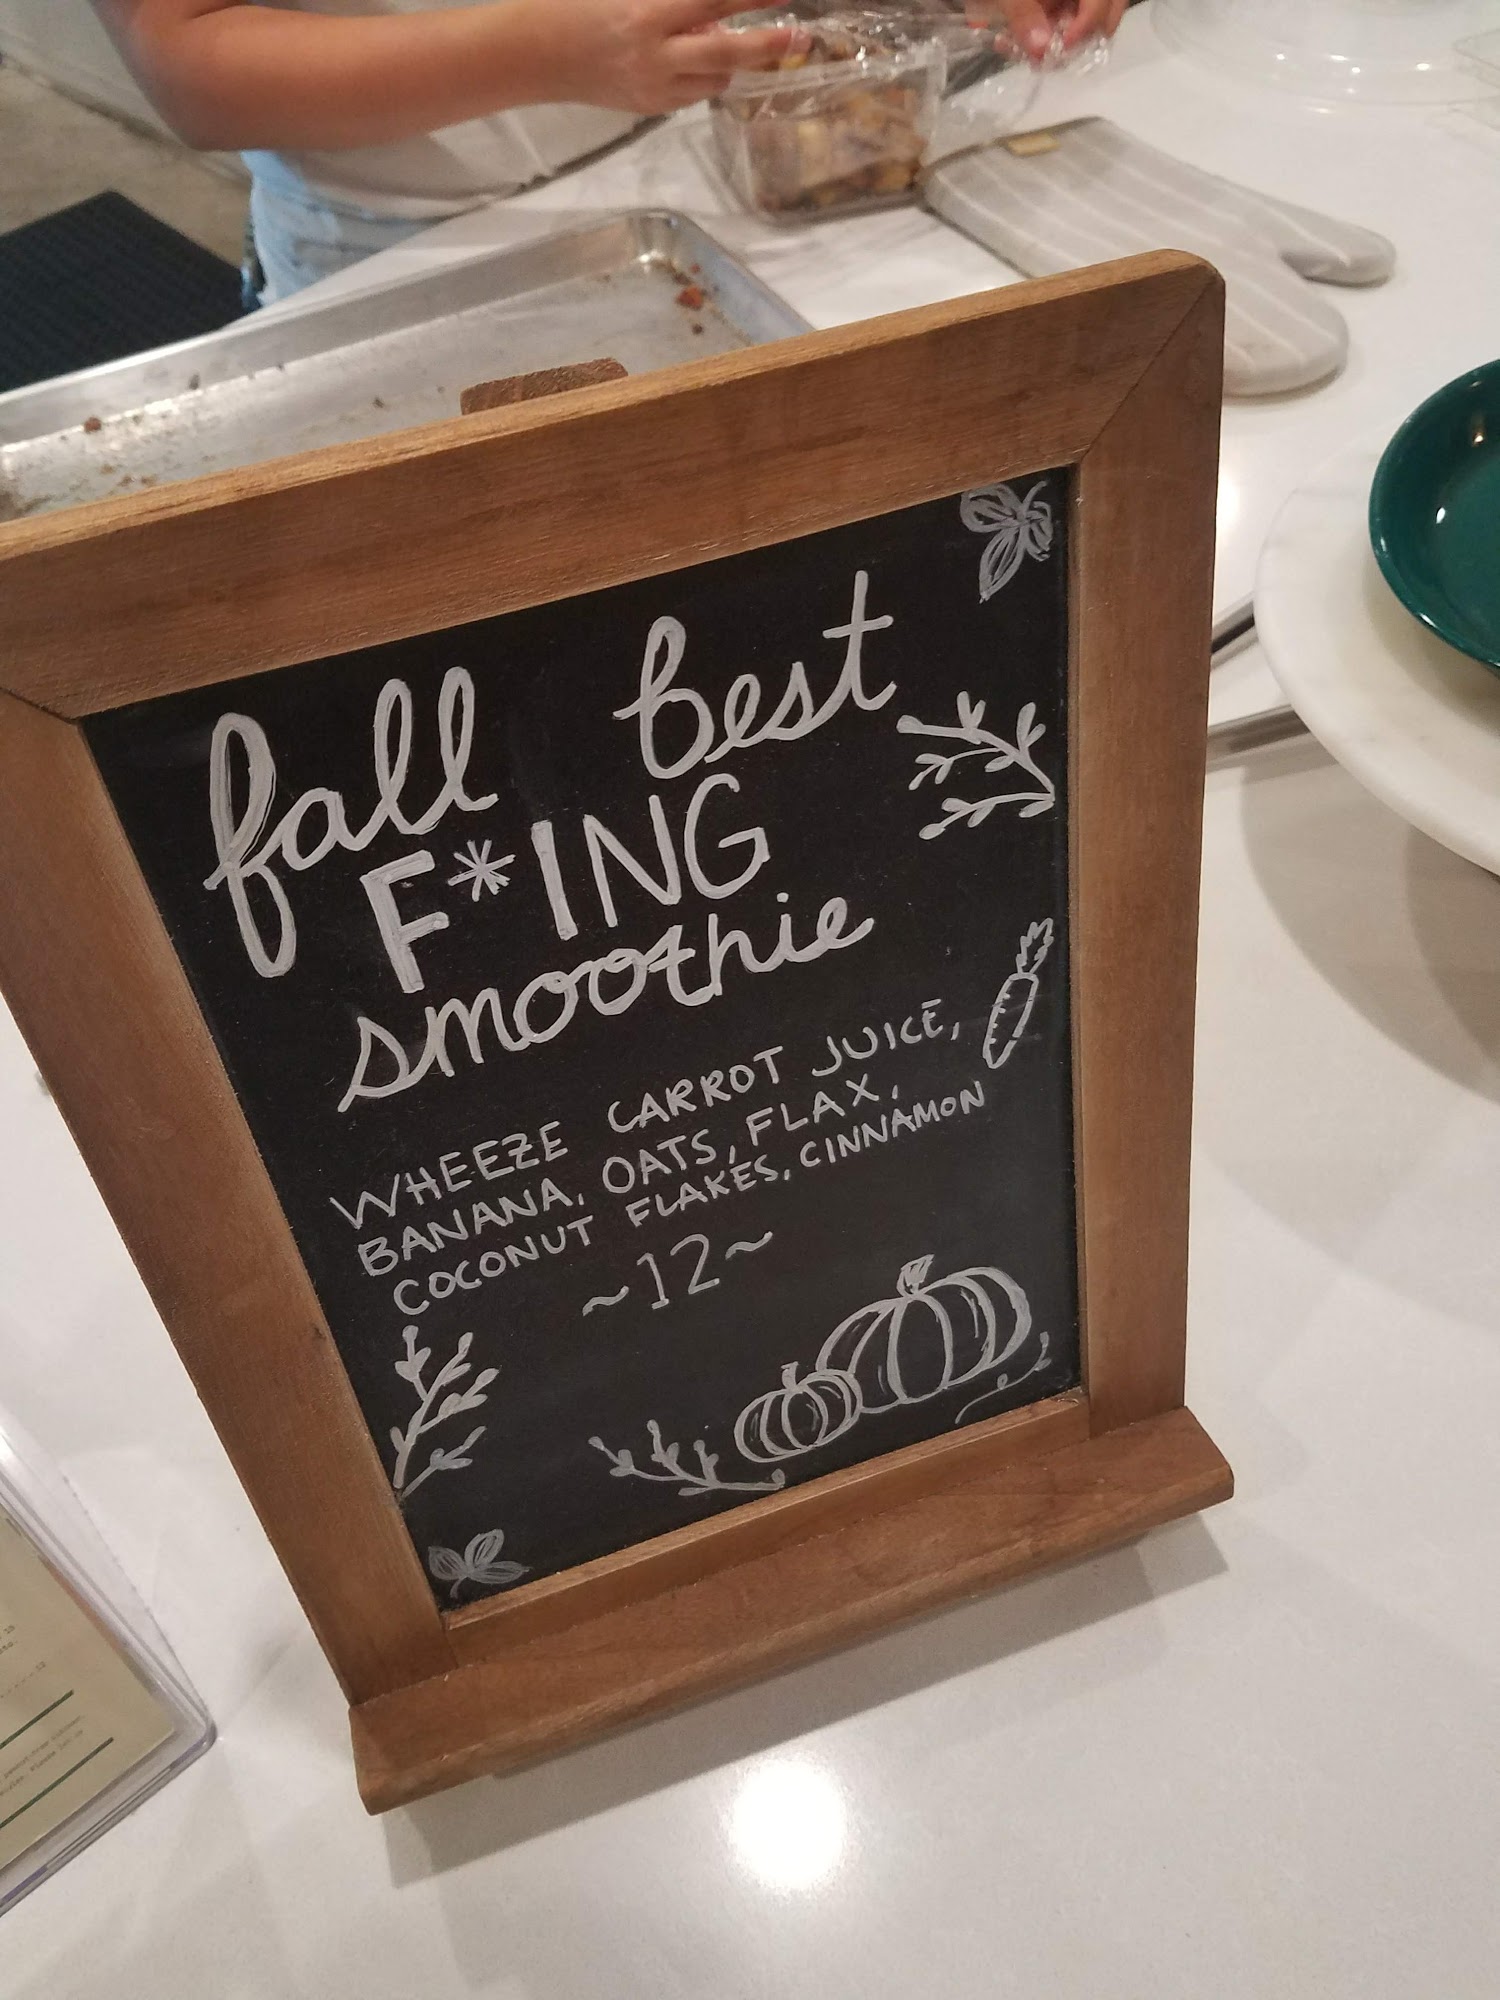 fall best
F*ING
smoothie
WHEEZE CARROT JUICE,
BANANA, OATS, FLAX,
COCONUT FLAKES, CINNAMON
~12~